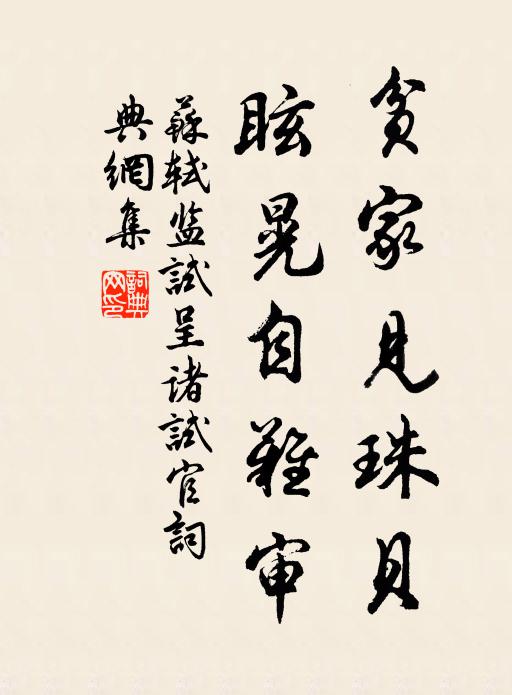 貧家見珠貝
眩晃自難审
蘇軾监試呈诸試官詞
典網集
詞典网印